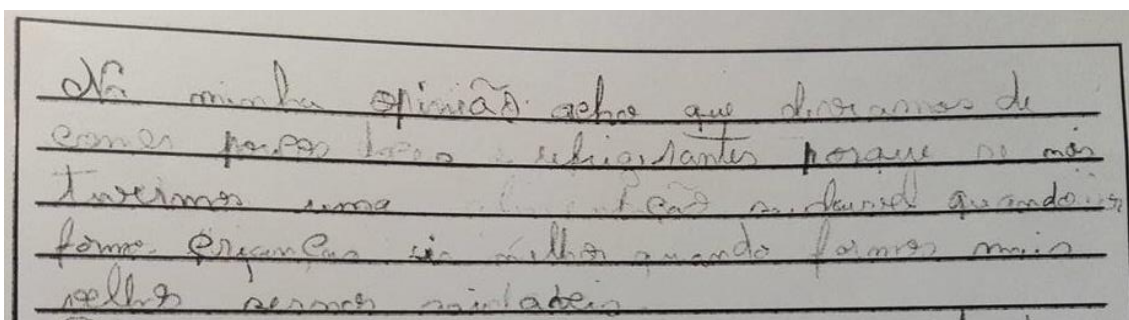 Na minha opinião acho que devramos de
comer poucos doces e refrigrantes porque se nós
tivermos uma saudavel quando
formo criançans melhor quando formos mais
velhos sermos saudabeis